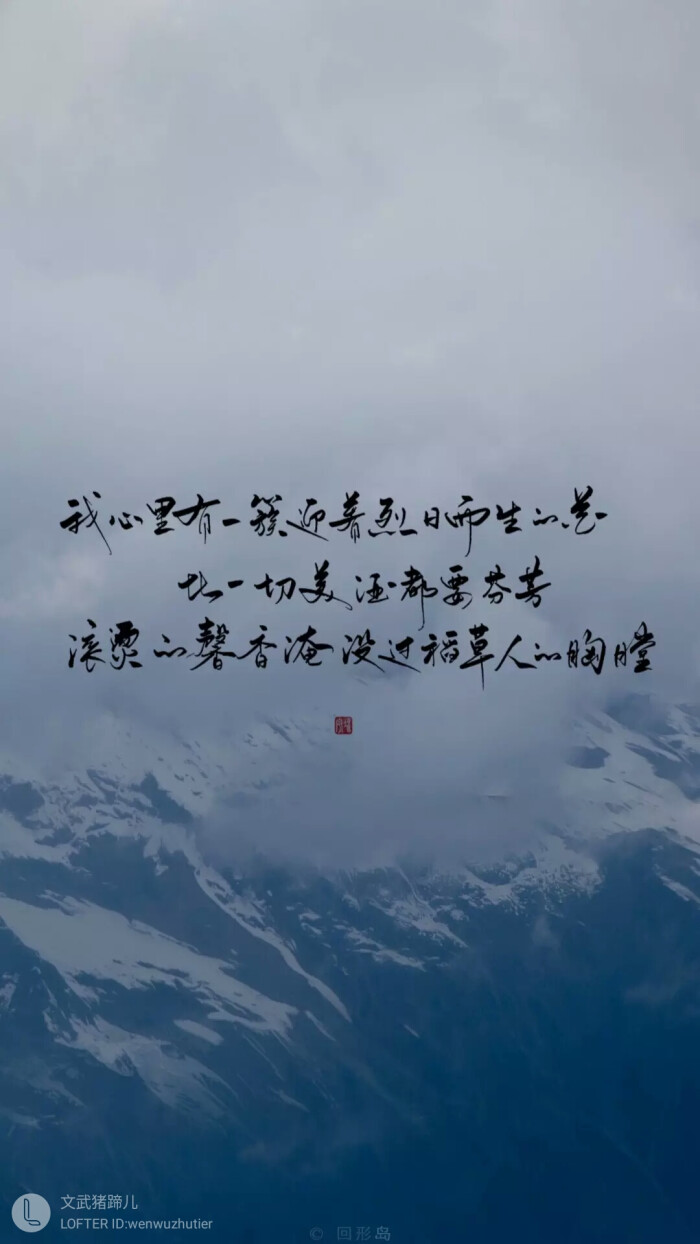 我心里有一簇迎着烈日而生的花
比一切美酒都要芬芳
滚烫的馨香淹没过稻草人的胸膛
文武猪蹄儿
LOFTER ID:wenwuzhutier
© 回形岛